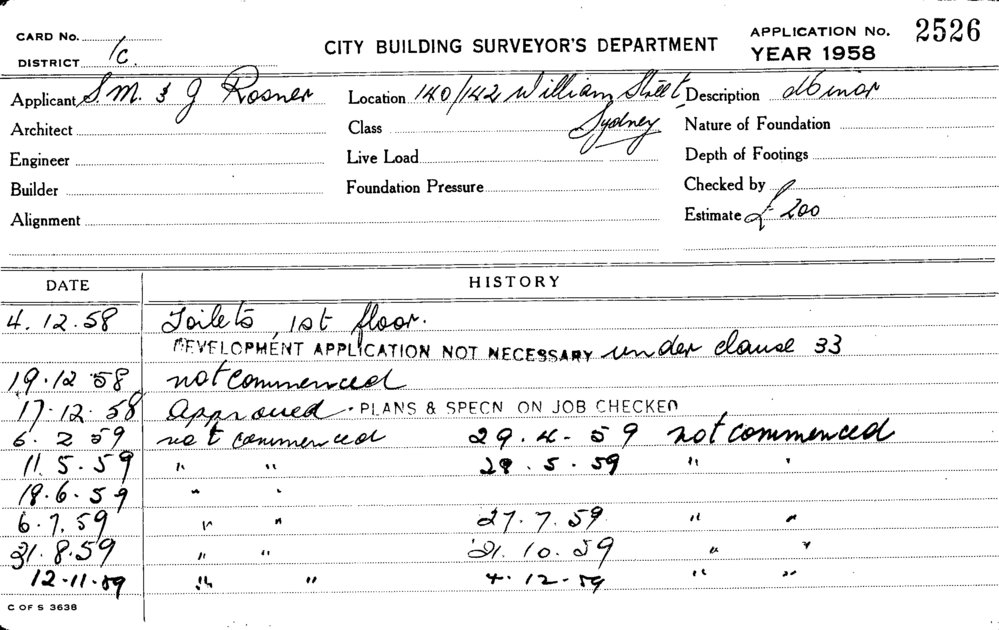 CARD No.
DISTRICT 1C.
CITY BUILDING SURVEYOR'S DEPARTMENT
APPLICATION No. 2526
YEAR 1958
Applicant S.M. & J Rosner Location 140/142 William Street Sydney Description Minor
Architect Class Nature of Foundation
Engineer Live Load Depth of Footings
Builder Foundation Pressure Checked by
Alignment Estimate £ 200
DATE HISTORY
4.12.58 Toilets 1st floor.
DEVELOPMENT APPLICATION NOT NECESSARY under clause 33
19.12 58 not commenced
17.12.58 Approved. PLANS & SPECN ON JOB CHECKED
6. 2 59 not commenced 29.4-59 not commenced
11.5.59 " " 29.5.59 " "
18.6.59 " "
6.7.59 " " 27.7.59 " "
31.8.59 " " 21.10.59 " "
12.11.59 " " 4.12-59 " "
C OF S 3638